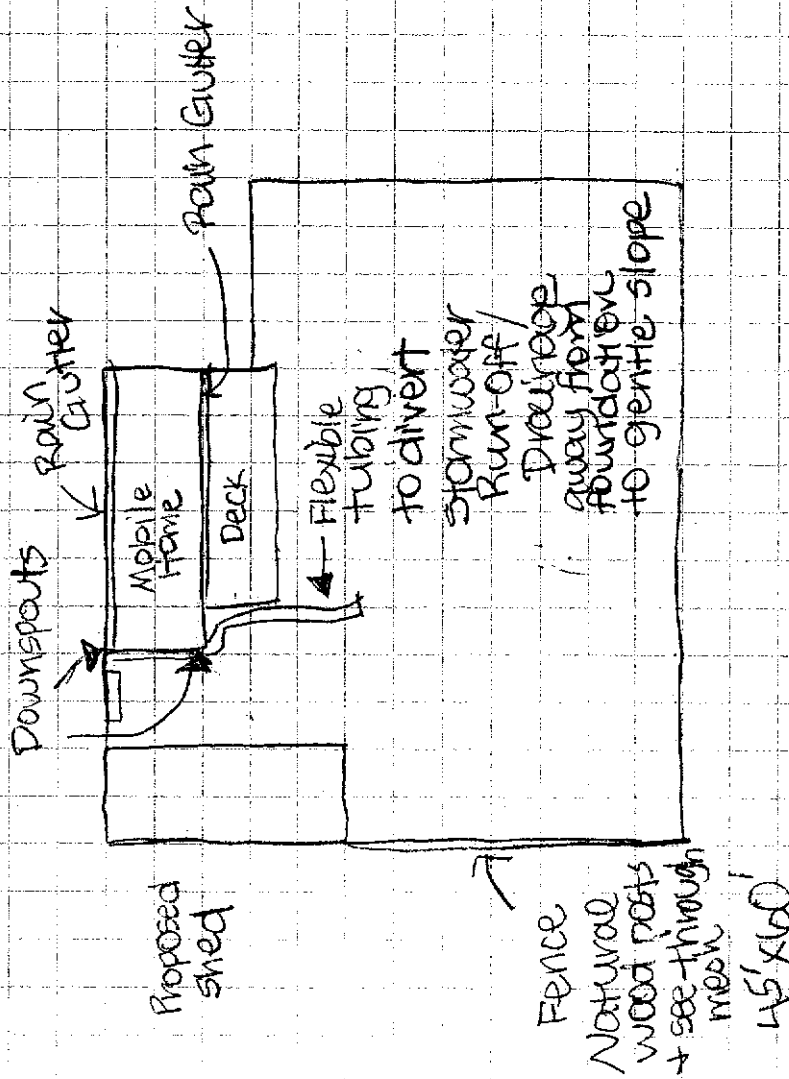 Rain Gutter
Rain
Gutter
Downspouts
Mobile
Home
Deck
Flexible
tubing
to divert
Stormwater
Run-off /
Drainage
away from
foundation
to gentle slope
Proposed
Shed
Fence
Natural
wood posts
+ see-through
mesh
45' x 60'